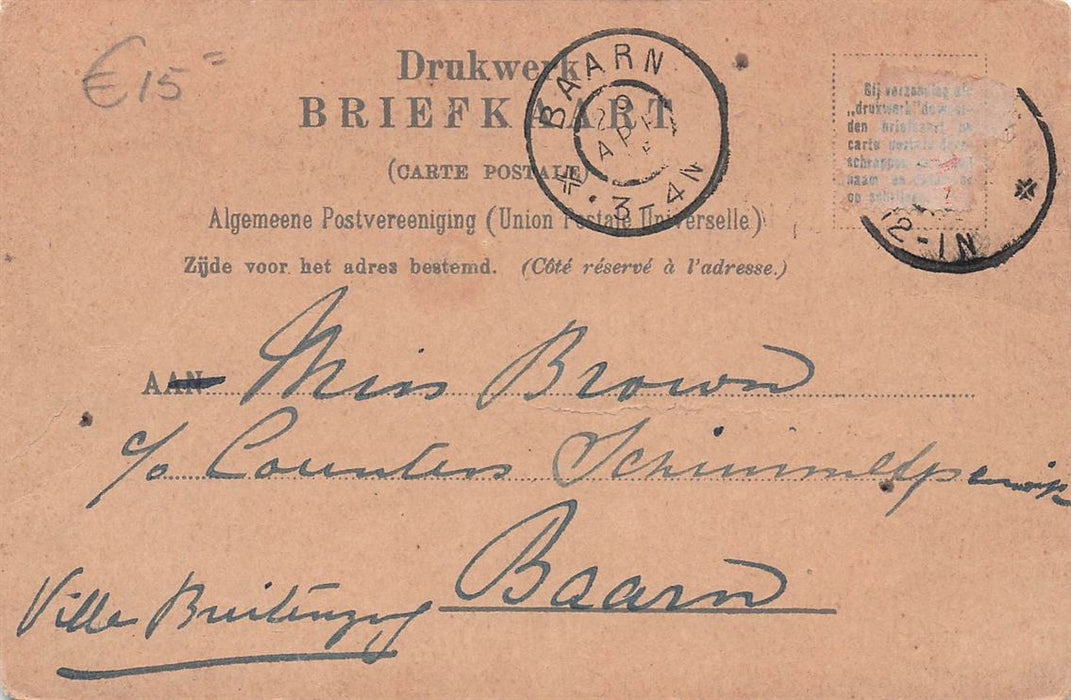 €15=
Drukwerk
BRIEFKAART
(CARTE POSTALE)
Algemeene Postvereeniging (Union Postale Universelle)
Zijde voor het adres bestemd. (Côté réservé à l'adresse.)
BAARN
20
APR
3-4N
Bij verzending als
„drukwerk" de
den briefkaart
carte postale door
schrappen
naam en
op
12-1N
AAN Miss Brown
c/o Countess Schimmelpenninck
Baarn
Villa